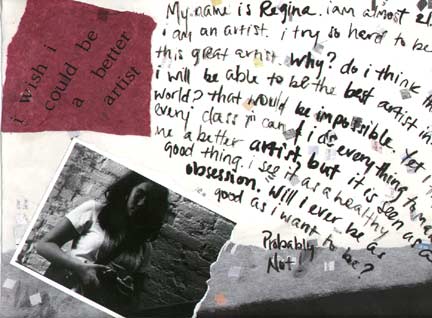 i wish i
could be
a better
artist
My name is Regina. i am almost 21.
i am an artist. i try so hard to be
this great artist. why? do i think th
i will be able to be the best artist in t
world? that would be impossible. Yet i t
every class i can & i do everything to ma
me a better artist, but it is seen as a
good thing. i see it as a healthy
obsession. Will i ever be as
good as i want to be?
Probably
Not!